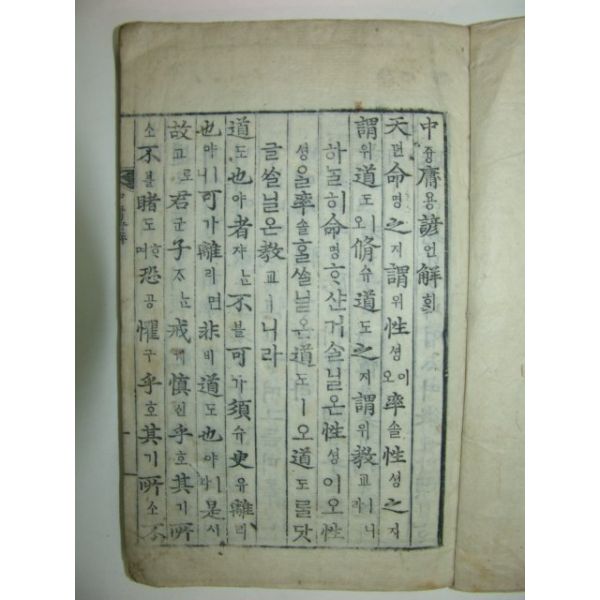 中듕庸용諺언解ᄒᆡ
天텬命명之지謂위性셩이오率솔性셩之지
謂위道도ㅣ오脩슈道도之지謂위敎교ㅣ니라
하ᄂᆞᆯ히命명ᄒᆞ샨거ᄉᆞᆯ닐온性셩이오性
셩을率솔ᄒᆞᆯᄊᆞᆯ닐온道도ㅣ오道도ᄅᆞᆯ닷
글ᄊᆞᆯ닐온敎교ㅣ니라
道도也야者쟈ᄂᆞᆫ不블可가須슈臾유離리
也야ㅣ니可가離리면非비道도也야ㅣ라是시
故고로君군子ᄌᆞᄂᆞᆫ戒계愼신乎호其기所
소不블睹도ᄒᆞ며恐공懼구乎호其기所소不